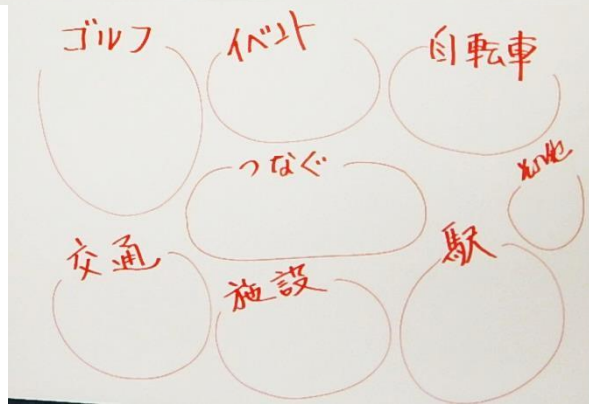 ゴルフ
イベント
自転車
つなぐ
その他
交通
施設
駅